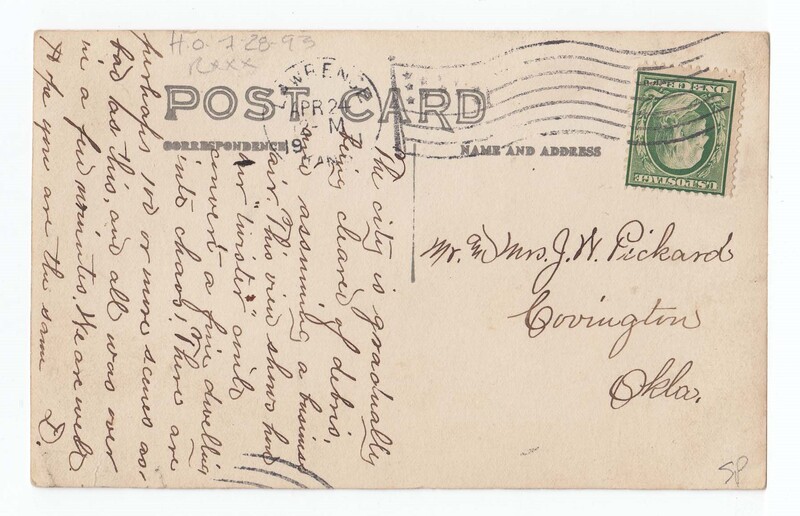 H.O. 7-28-93
RXXX
LAWRENCE
APR 24
M
KANS.
POST CARD
CORRESPONDENCE
NAME AND ADDRESS
ONE CENT
U.S. POSTAGE
The city is gradually
being cleared of debris,
and assuming a business
air. This view shows how
"twister" could
convert a fine dwelling
into chaos. There are
perhaps 100 or more scenes as
bad as this, and all was over
in a few minutes. We are well
Hope you are the same D.
Mr. & Mrs. J. W. Pickard
Covington
Okla.
SP